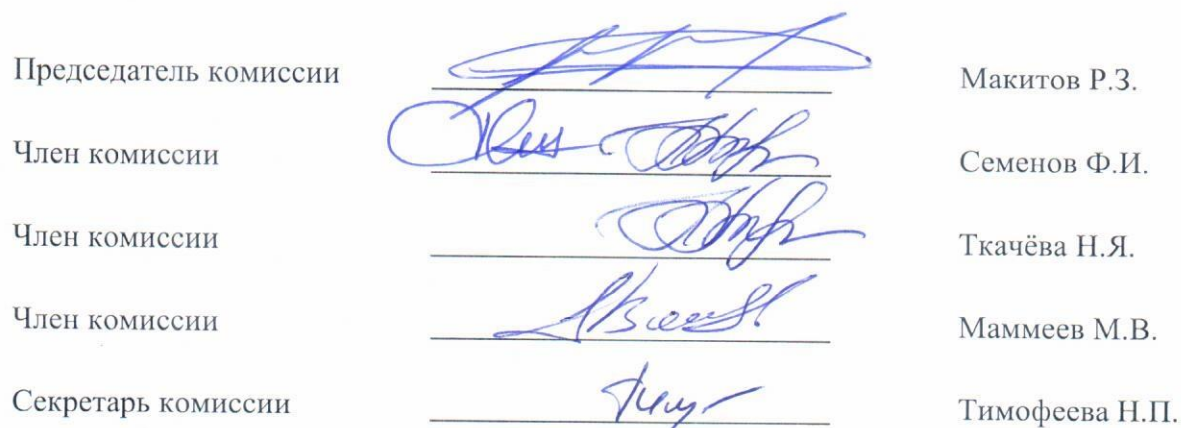 Председатель комиссии Макитов Р.З.
Член комиссии Семенов Ф.И.
Член комиссии Ткачёва Н.Я.
Член комиссии Маммеев М.В.
Секретарь комиссии Тимофеева Н.П.